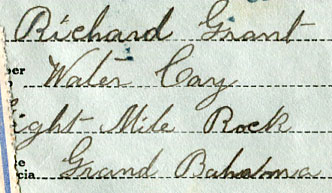 Richard Grant
per Water Cay
ight Mile Rock
Grand Bahama
cia